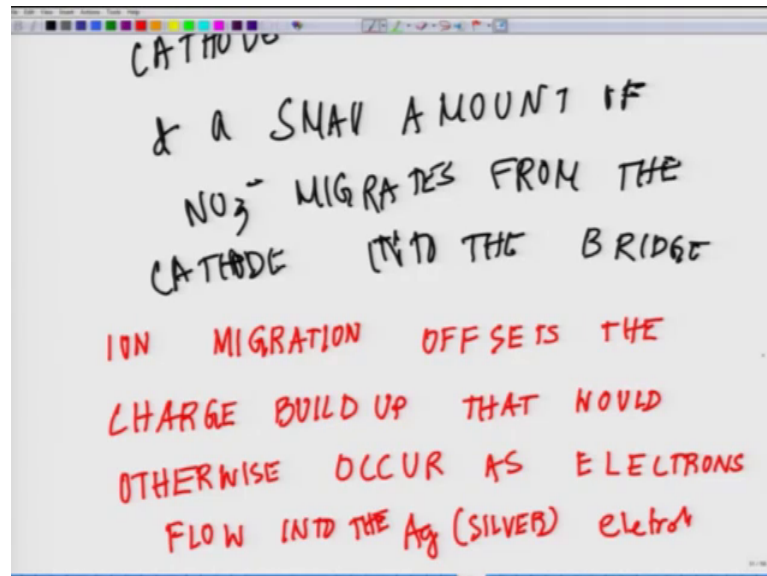 CATHODE
& a SMALL AMOUNT OF
NO3- MIGRATES FROM THE
CATHODE INTO THE BRIDGE
ION MIGRATION OFFSETS THE
CHARGE BUILD UP THAT WOULD
OTHERWISE OCCUR AS ELECTRONS
FLOW INTO THE Ag (SILVER)